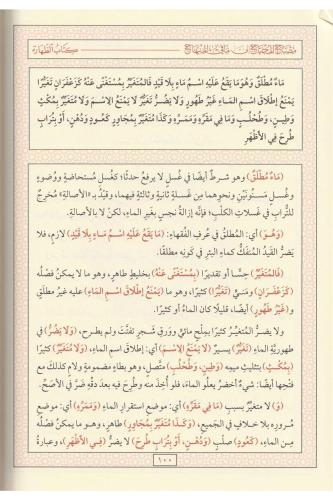 كتاب الطهارة
مَاءٌ مُطْلَقٌ وَهُوَ مَا يَقَعُ عَلَيْهِ اسْمُ مَاءٍ بِلَا قَيْدٍ فَالْمُتَغَيِّرُ بِمُسْتَغْنًى عَنْهُ كَزَعْفَرَانٍ تَغَيُّرًا
يَمْنَعُ إِطْلَاقَ اسْمِ المَاءِ غَيْرُ طَهُورٍ وَلَا يَضُرُّ تَغَيُّرٌ لَا يَمْنَعُ الِاسْمَ وَلَا مُتَغَيِّرٌ بِمُكْثٍ
وَطِينٍ، وَطُحْلُبٍ وَمَا فِي مَقَرِّهِ وَمَمَرِّهِ وَكَذَا مُتَغَيِّرٌ بِمُجَاوِرٍ كَعُودٍ وَدُهْنٍ، أَوْ بِتُرَابٍ
طُرِحَ فِي الأَظْهَرِ
(مَاءٌ مُطْلَقٌ) وهو شرطٌ أيضًا في غُسل لا يرفعُ حدثًا؛ كغُسل مستحاضةٍ ووُضوءٍ
وغُسلٍ مسنُونَينِ ونحوِهما مِن غَسلةٍ ثانيةٍ وثالثةٍ فيهما، وقيدُ بـ «الأصالةِ» مُخرِجٌ
للتُّراب في غَسلات الكلبِ؛ فإنَّه إزالةُ نجسٍ بغَيرِ الماءِ، لكنْ لا بالأصالةِ.
(وَهُوَ) أي: المُطلقُ في عُرفِ الفُقهاءِ: (مَا يَقَعُ عَلَيْهِ اسْمُ مَاءٍ بِلَا قَيْدٍ) لازمٍ، فلا
يَضرُّ القيدُ المُنفكُّ كماءِ البئرِ في كَونِه مطلقًا.
(فَالمُتَغَيِّرُ) حِسًّا أو تقديرًا (بِمُسْتَغْنًى عَنْهُ) بخليطٍ طاهرٍ، وهو ما لا يمكنُ فَصلُه
(كَزَعْفَرَانٍ) ومَنيٍّ (تَغَيُّرًا) كثيرًا، وهو ما (يَمْنَعُ إِطْلَاقَ اسْمِ المَاءِ) عليه غيرُ مطلقٍ
و(غَيْرُ طَهُورٍ) أيضًا، قليلًا كان الماءُ أو كثيرًا.
ولا يضرُّ المتغيرُ كثيرًا بمِلحٍ مائيٍّ وورقِ شجرٍ تفتَّت ولم يطرح، (وَلَا يَضُرُّ) في
طهوريَّةِ الماءِ (تَغَيُّرٌ) يسيرٌ (لَا يَمْنَعُ الِاسْمَ) أي: إطلاقَ اسمِ الماءِ، (وَلَا مُتَغَيِّرٌ) كثيرًا
(بِمُكْثٍ) بتثليثِ ميمِه (وَطِينٍ، وَطُحْلُبٍ) متَّصلٍ، وهو بطاءٍ مضمومةٍ ولامٍ كذلك مع
فتحِها أيضًا: شيءٌ أخضرُ يعلُو الماءَ، فلو أُخذَ منه وطُرِحَ فيه بعدَ دقِّه ضَرَّ في الأصحِّ.
(وَ) لا متغيِّرٌ بسببِ (مَا فِي مَقَرِّهِ) أي: موضعِ استقرارِ الماءِ (وَمَمَرِّهِ) أي: موضعِ
مُرورِه بلا خلافٍ في الجميعِ، (وَكَذَا مُتَغَيِّرٌ بِمُجَاوِرٍ) طاهرٍ، وهو ما يمكنُ فَصلُه
مِن الماءِ، (كَعُودٍ) صلبٍ (وَدُهْنٍ، أَوْ بِتُرَابٍ طُرِحَ) لا يضرُّ (فِي الأَظْهَرِ)، وعبارةُ
١٠٠